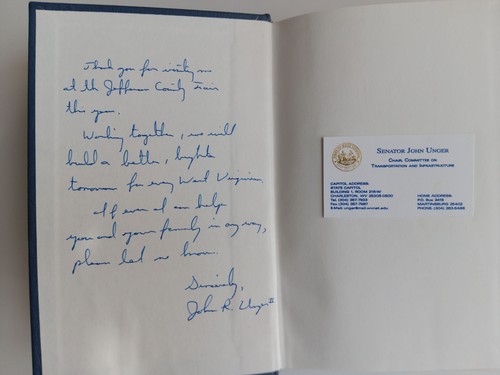 Thank you for visiting me
at the Jefferson County Fair
this year.
Working together, we will
build a better, brighter
tomorrow for every West Virginian.
If ever I can help
you and your family in any way,
please let me know.
Sincerely,
John R. Unger II
SENATOR JOHN UNGER
CHAIR, COMMITTEE ON
TRANSPORTATION AND INFRASTRUCTURE
CAPITOL ADDRESS:
STATE CAPITOL
BUILDING 1, ROOM
CHARLESTON, WV
Tel. (304) 357-7933
Fax (304) 357-7987
E-Mail:
HOME ADDRESS:
P.O. Box
MARTINSBURG 25402
PHONE: (304)